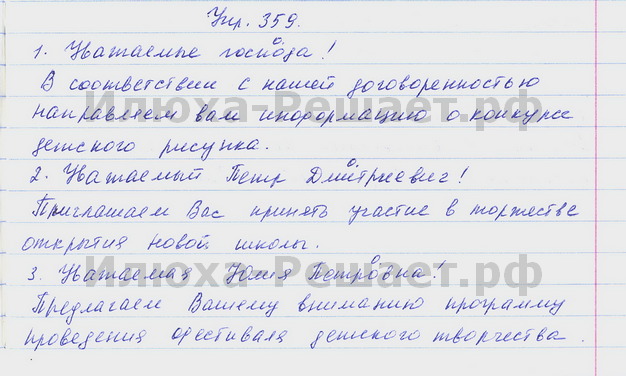 Упр. 359.
1. Уважаемые господа!
В соответствии с нашей договоренностью
направляем вам информацию о конкурсе
детского рисунка.
2. Уважаемый Петр Дмитриевич!
Приглашаем Вас принять участие в торжестве
открытия новой школы.
3. Уважаемая Юлия Петровна!
Предлагаем Вашему вниманию программу
проведения фестиваля детского творчества.
Илюха-Решает.рф
Илюха-Решает.рф